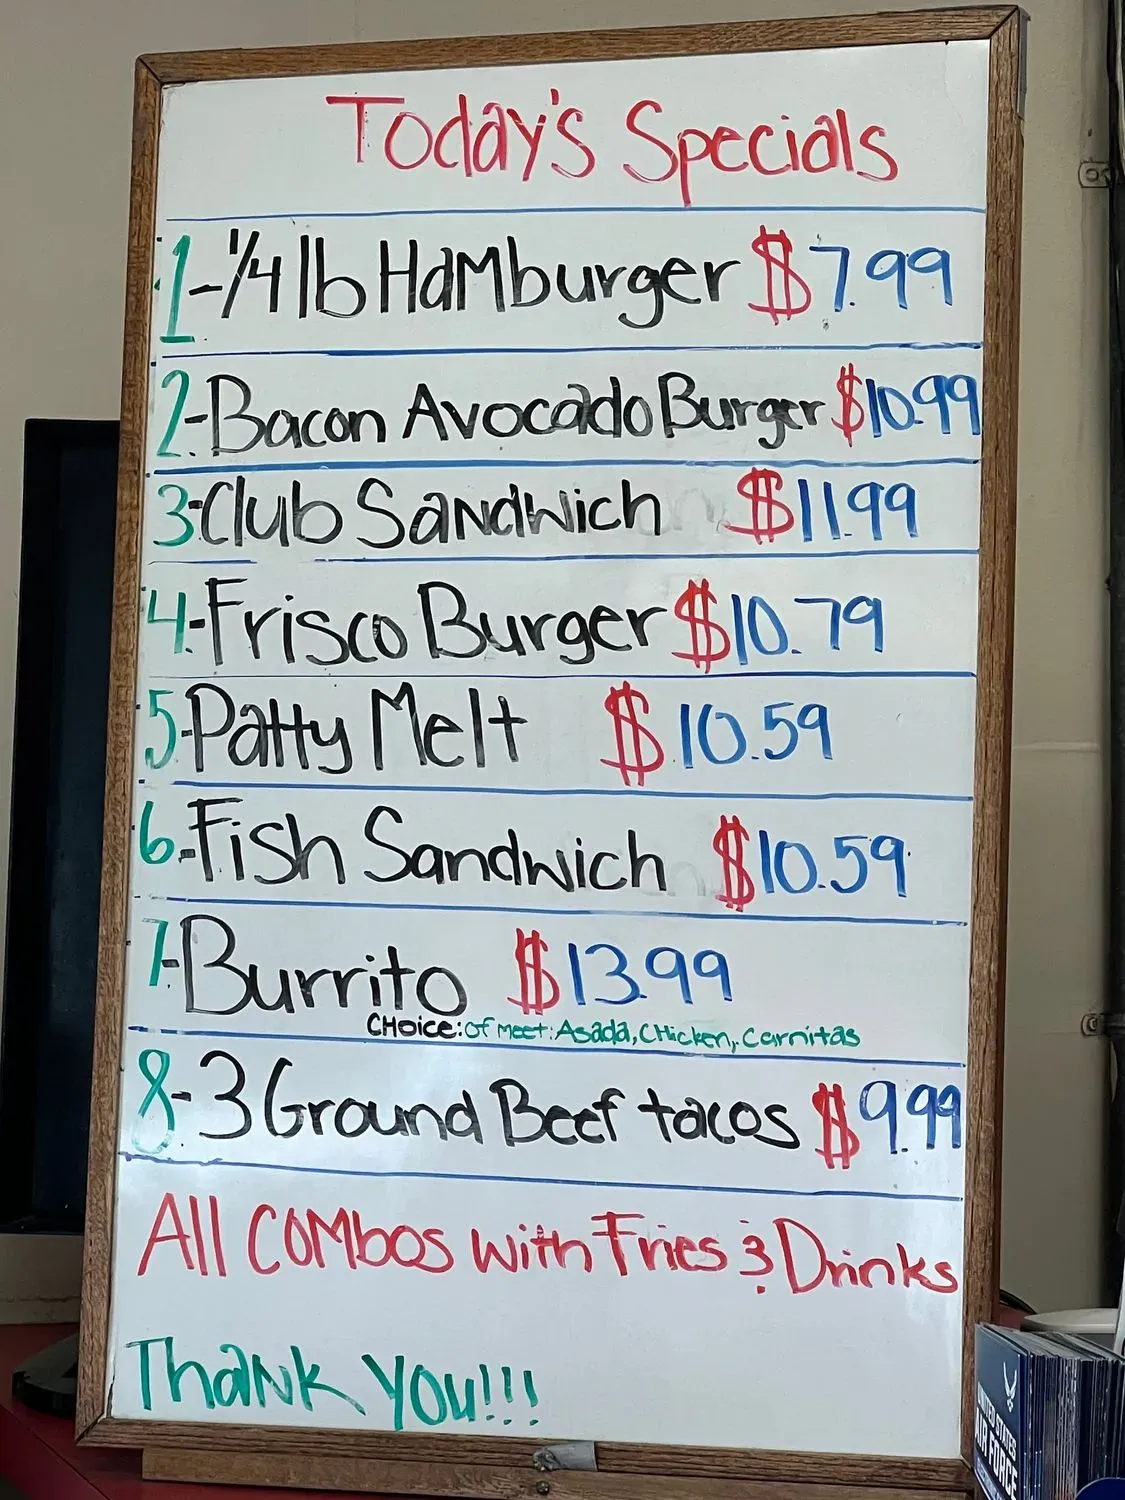 Today's Specials
1-1/4 lb Hamburger $7.99
2-Bacon Avocado Burger $10.99
3-Club Sandwich $11.99
4-Frisco Burger $10.79
5-Patty Melt $10.59
6-Fish Sandwich $10.59
7-Burrito $13.99
CHoice: of meet: Asada, CHicken, Carnitas
8-3 Ground Beef tacos $9.99
All COMbos with Fries & Drinks
Thank you!!!
UNITED STATES
AIR FORCE